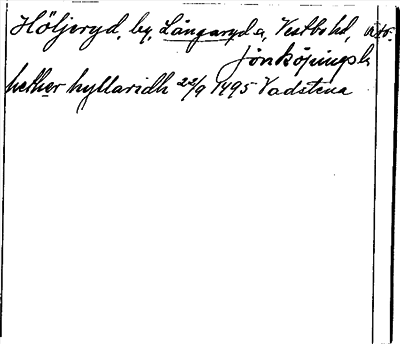 Höljeryd, by, Långaryd s, Vestbo hd,
Jönköpings l.
hether hyllaridh 22/9 1495 Vadstena